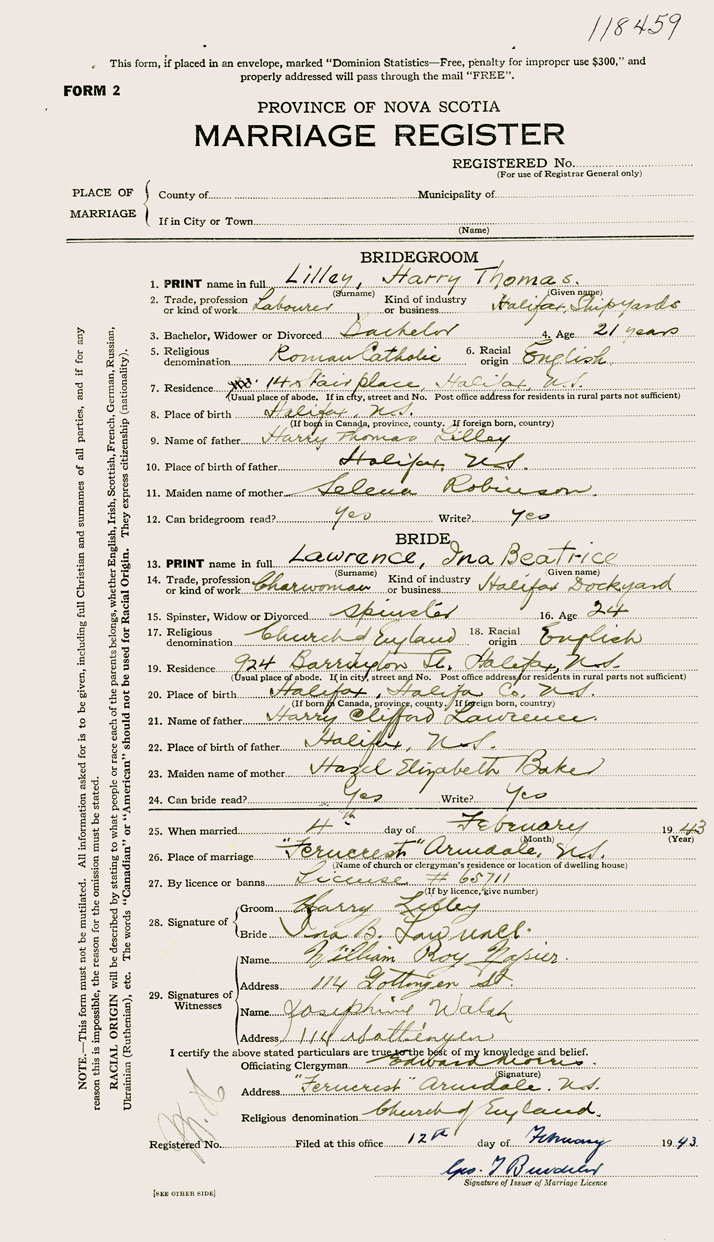 118459
This form, if placed in an envelope, marked "Dominion Statistics—Free, penalty for improper use $300," and
properly addressed will pass through the mail "FREE".
FORM 2
PROVINCE OF NOVA SCOTIA
MARRIAGE REGISTER
REGISTERED No.
(For use of Registrar General only)
PLACE OF MARRIAGE
County of Municipality of
If in City or Town
(Name)
BRIDEGROOM
1. PRINT name in full Lilley, Harry Thomas.
(Surname) (Given name)
2. Trade, profession or kind of work Labourer Kind of industry or business Halifax Shipyards
3. Bachelor, Widower or Divorced Bachelor 4. Age 21 years
5. Religious denomination Roman Catholic 6. Racial origin English
7. Residence 14 Stair place, Halifax, N.S.
(Usual place of abode. If in city, street and No. Post office address for residents in rural parts not sufficient)
8. Place of birth Halifax, N.S.
(If born in Canada, province, county. If foreign born, country)
9. Name of father Harry Thomas Lilley
10. Place of birth of father Halifax, N.S.
11. Maiden name of mother Selena Robinson.
12. Can bridegroom read? Yes Write? Yes
BRIDE
13. PRINT name in full Lawrence, Ina Beatrice
(Surname) (Given name)
14. Trade, profession or kind of work Charwoman Kind of industry or business Halifax Dockyard
15. Spinster, Widow or Divorced Spinster 16. Age 24
17. Religious denomination Church of England 18. Racial origin English
19. Residence 924 Barrington St. Halifax, N.S.
(Usual place of abode. If in city, street and No. Post office address for residents in rural parts not sufficient)
20. Place of birth Halifax, Halifa Co. N.S.
(If born in Canada, province, county. If foreign born, country)
21. Name of father Harry Clifford Lawrence.
22. Place of birth of father Halifax, N.S.
23. Maiden name of mother Hazel Elizabeth Baker
24. Can bride read? Yes Write? Yes
25. When married 4th day of February 1943
(Month) (Year)
26. Place of marriage "Ferncrest" Armdale, N.S.
(Name of church or clergyman's residence or location of dwelling house)
27. By licence or banns License # 65711
(If by licence, give number)
28. Signature of
Groom Harry Lilley
Bride Ina B. Lawrence.
29. Signatures of Witnesses
Name William Roy Napier.
Address 114 Gottingen St.
Name Josephine Walsh
Address 114 Gottingen
I certify the above stated particulars are true to the best of my knowledge and belief.
Officiating Clergyman Edward Morris.
(Signature)
Address "Ferncrest" Armdale. N.S.
Religious denomination Church of England.
Registered No. Filed at this office 12th day of February 1943.
Geo. T
Signature of Issuer of Marriage Licence
[SEE OTHER SIDE]
NOTE.—This form must not be mutilated. All information asked for is to be given, including full Christian and surnames of all parties, and if for any
reason this is impossible, the reason for the omission must be stated.
RACIAL ORIGIN will be described by stating to what people or race each of the parents belongs, whether English, Irish, Scottish, French, German, Russian,
Ukrainian (Ruthenian), etc. The words "Canadian" or "American" should not be used for Racial Origin. They express citizenship (nationality).